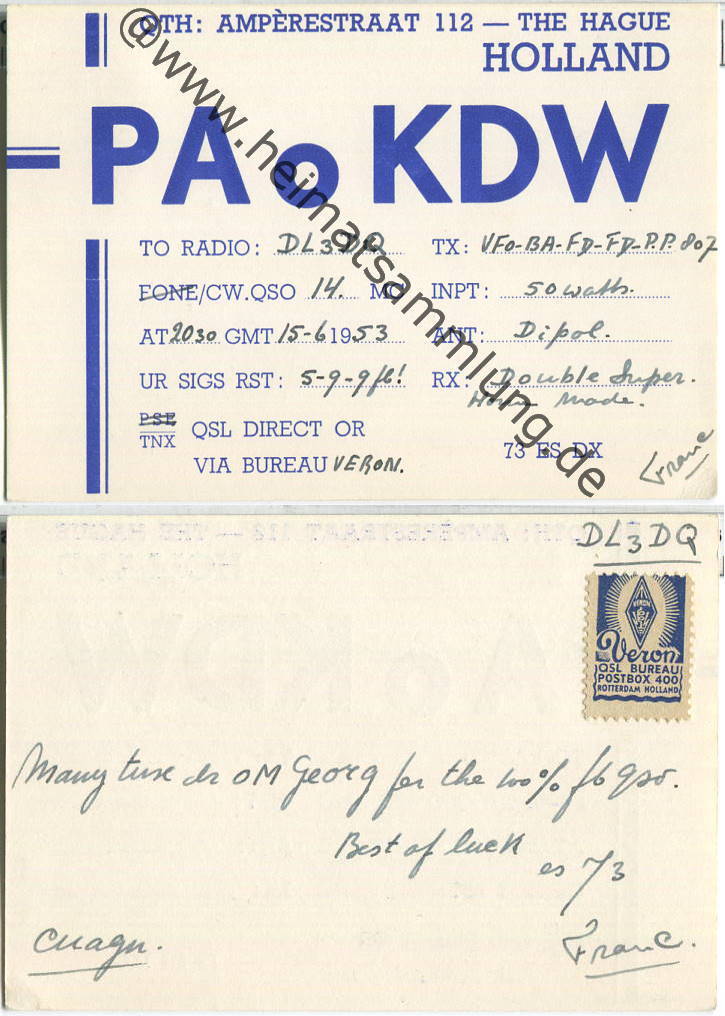 QTH: AMPÈRESTRAAT 112 — THE HAGUE
HOLLAND
PAoKDW
TO RADIO: DL3DQ TX: VFO-BA-FD-FD-P.P. 807
FONE/CW.QSO 14. MC INPT: 50 watts.
AT 2030 GMT 15-6 1953 ANT: Dipol.
UR SIGS RST: 5-9-9 fb! RX: Double Super.
Home Made.
PSE
TNX QSL DIRECT OR
VIA BUREAU VERON. 73 ES DX
Franc
@www.heimatsammlung.de
DL3DQ
VERON
Veron
QSL BUREAU
POSTBOX 400
ROTTERDAM HOLLAND
Many tnx dr OM Georg for the 100% fb qso.
Best of luck
es 73
cuagn.
Franc.